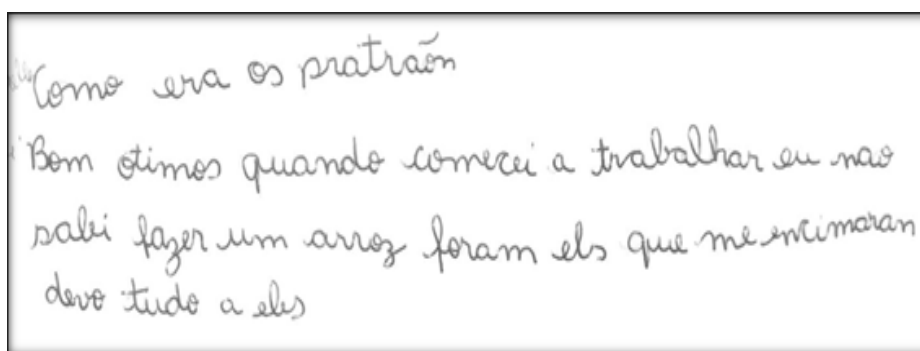 Como era os pratraõn
Bom otimos quando comecei a trabalhar eu nao
sabi fazer um arroz foram els que me encimaran
devo tudo a eles